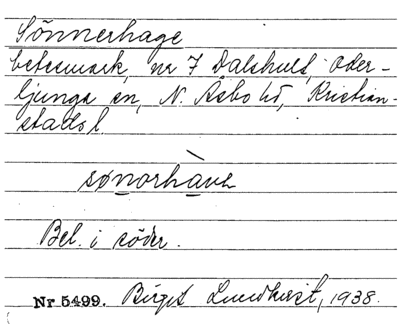 Sönnerhage
betesmark, nr 7 Dalshult, Oder-
ljunga sn, N. Åsbo hd, Kristian-
stads l.
Bel. i söder.
Nr 5499. Birgit Lundkvist, 1938.